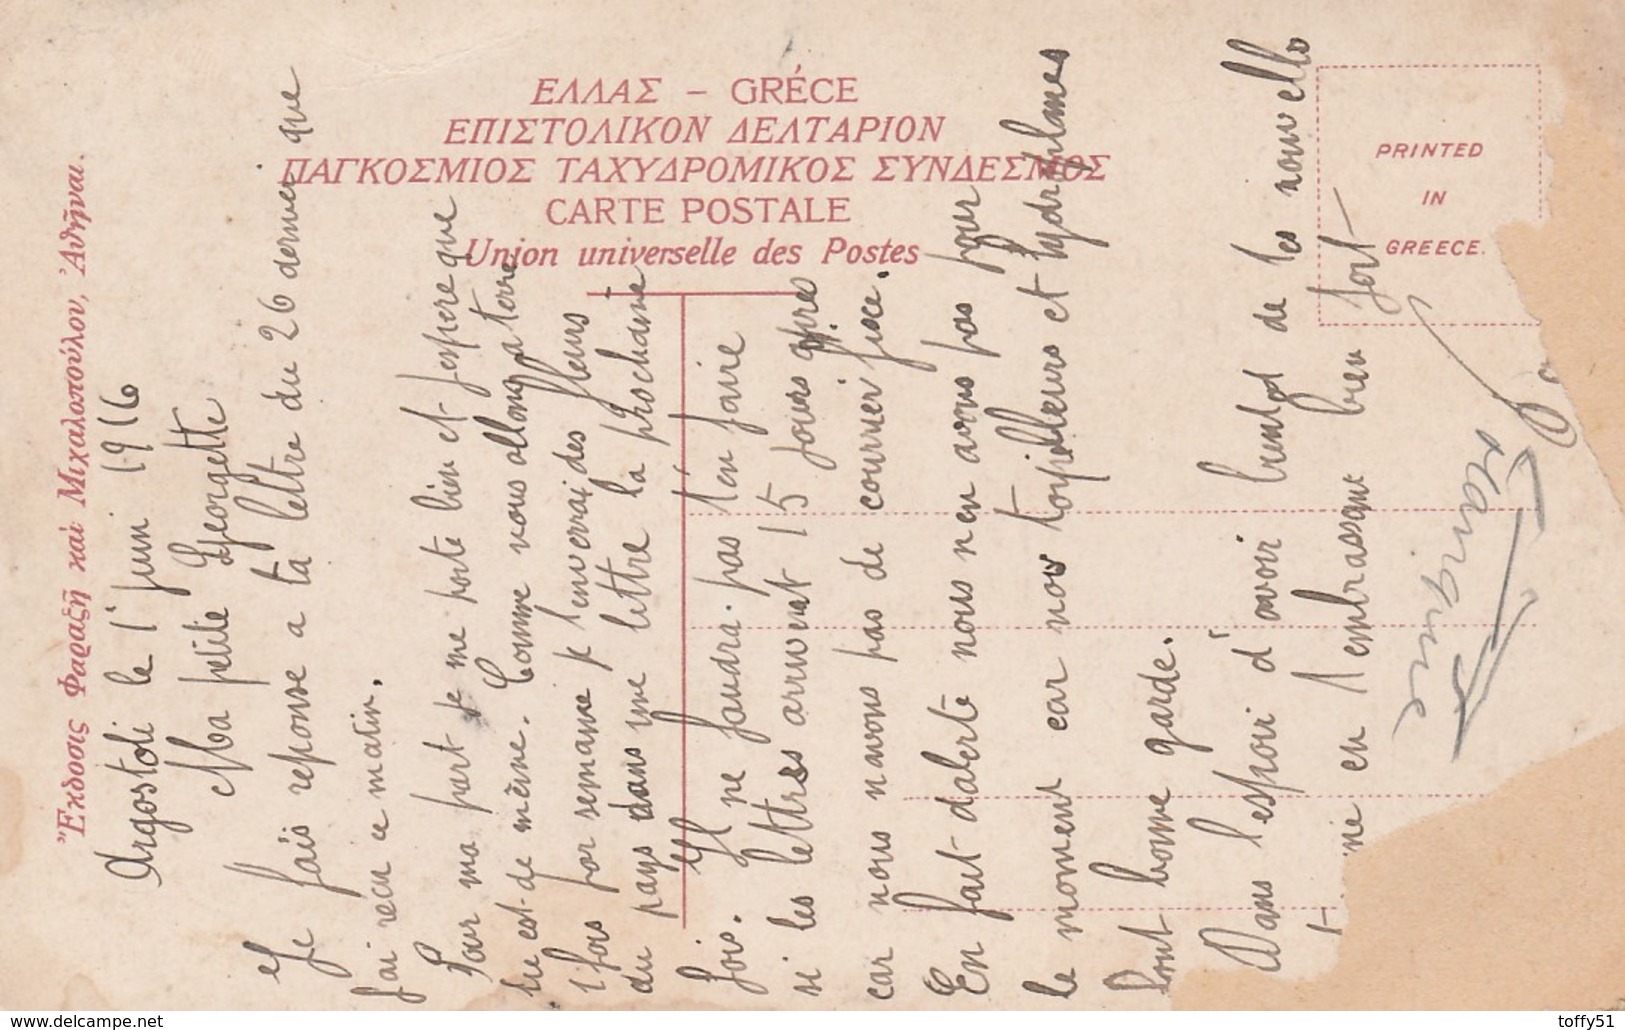 ΕΛΛΑΣ – GRÉCE
ΕΠΙΣΤΟΛΙΚΟΝ ΔΕΛΤΑΡΙΟΝ
ΠΑΓΚΟΣΜΙΟΣ ΤΑΧΥΔΡΟΜΙΚΟΣ ΣΥΝΔΕΣΜΟΣ
CARTE POSTALE
Union universelle des Postes
PRINTED
IN
GREECE.
Ἔκδοσις Φαραζῆ καὶ Μιχαλοπούλου, Ἀθῆναι.
Argostoli le 1 juin 1916
Ma petite Georgette
Je fais reponse a ta lettre du 26 dernier que
j'ai recu ce matin.
Pour ma part je me porte bien et j'espere que
tu est de même. Comme vous allonga terre
1 fois par semaine je t'enverrai des fleurs
du pays dans une lettre la prochaine
fois. Il ne faudra pas t'en faire
si les lettres arrivent 15 jours apres
car nous navons pas de courrier fixe.
En fait d'alerte nous n'en avons pas pour
le moment car nos torpilleurs et hydroplanes
font bonne garde.
Dans l'espoir d'avoir bientot de tes nouvelles
en t'embrassant bien fort
toffy51